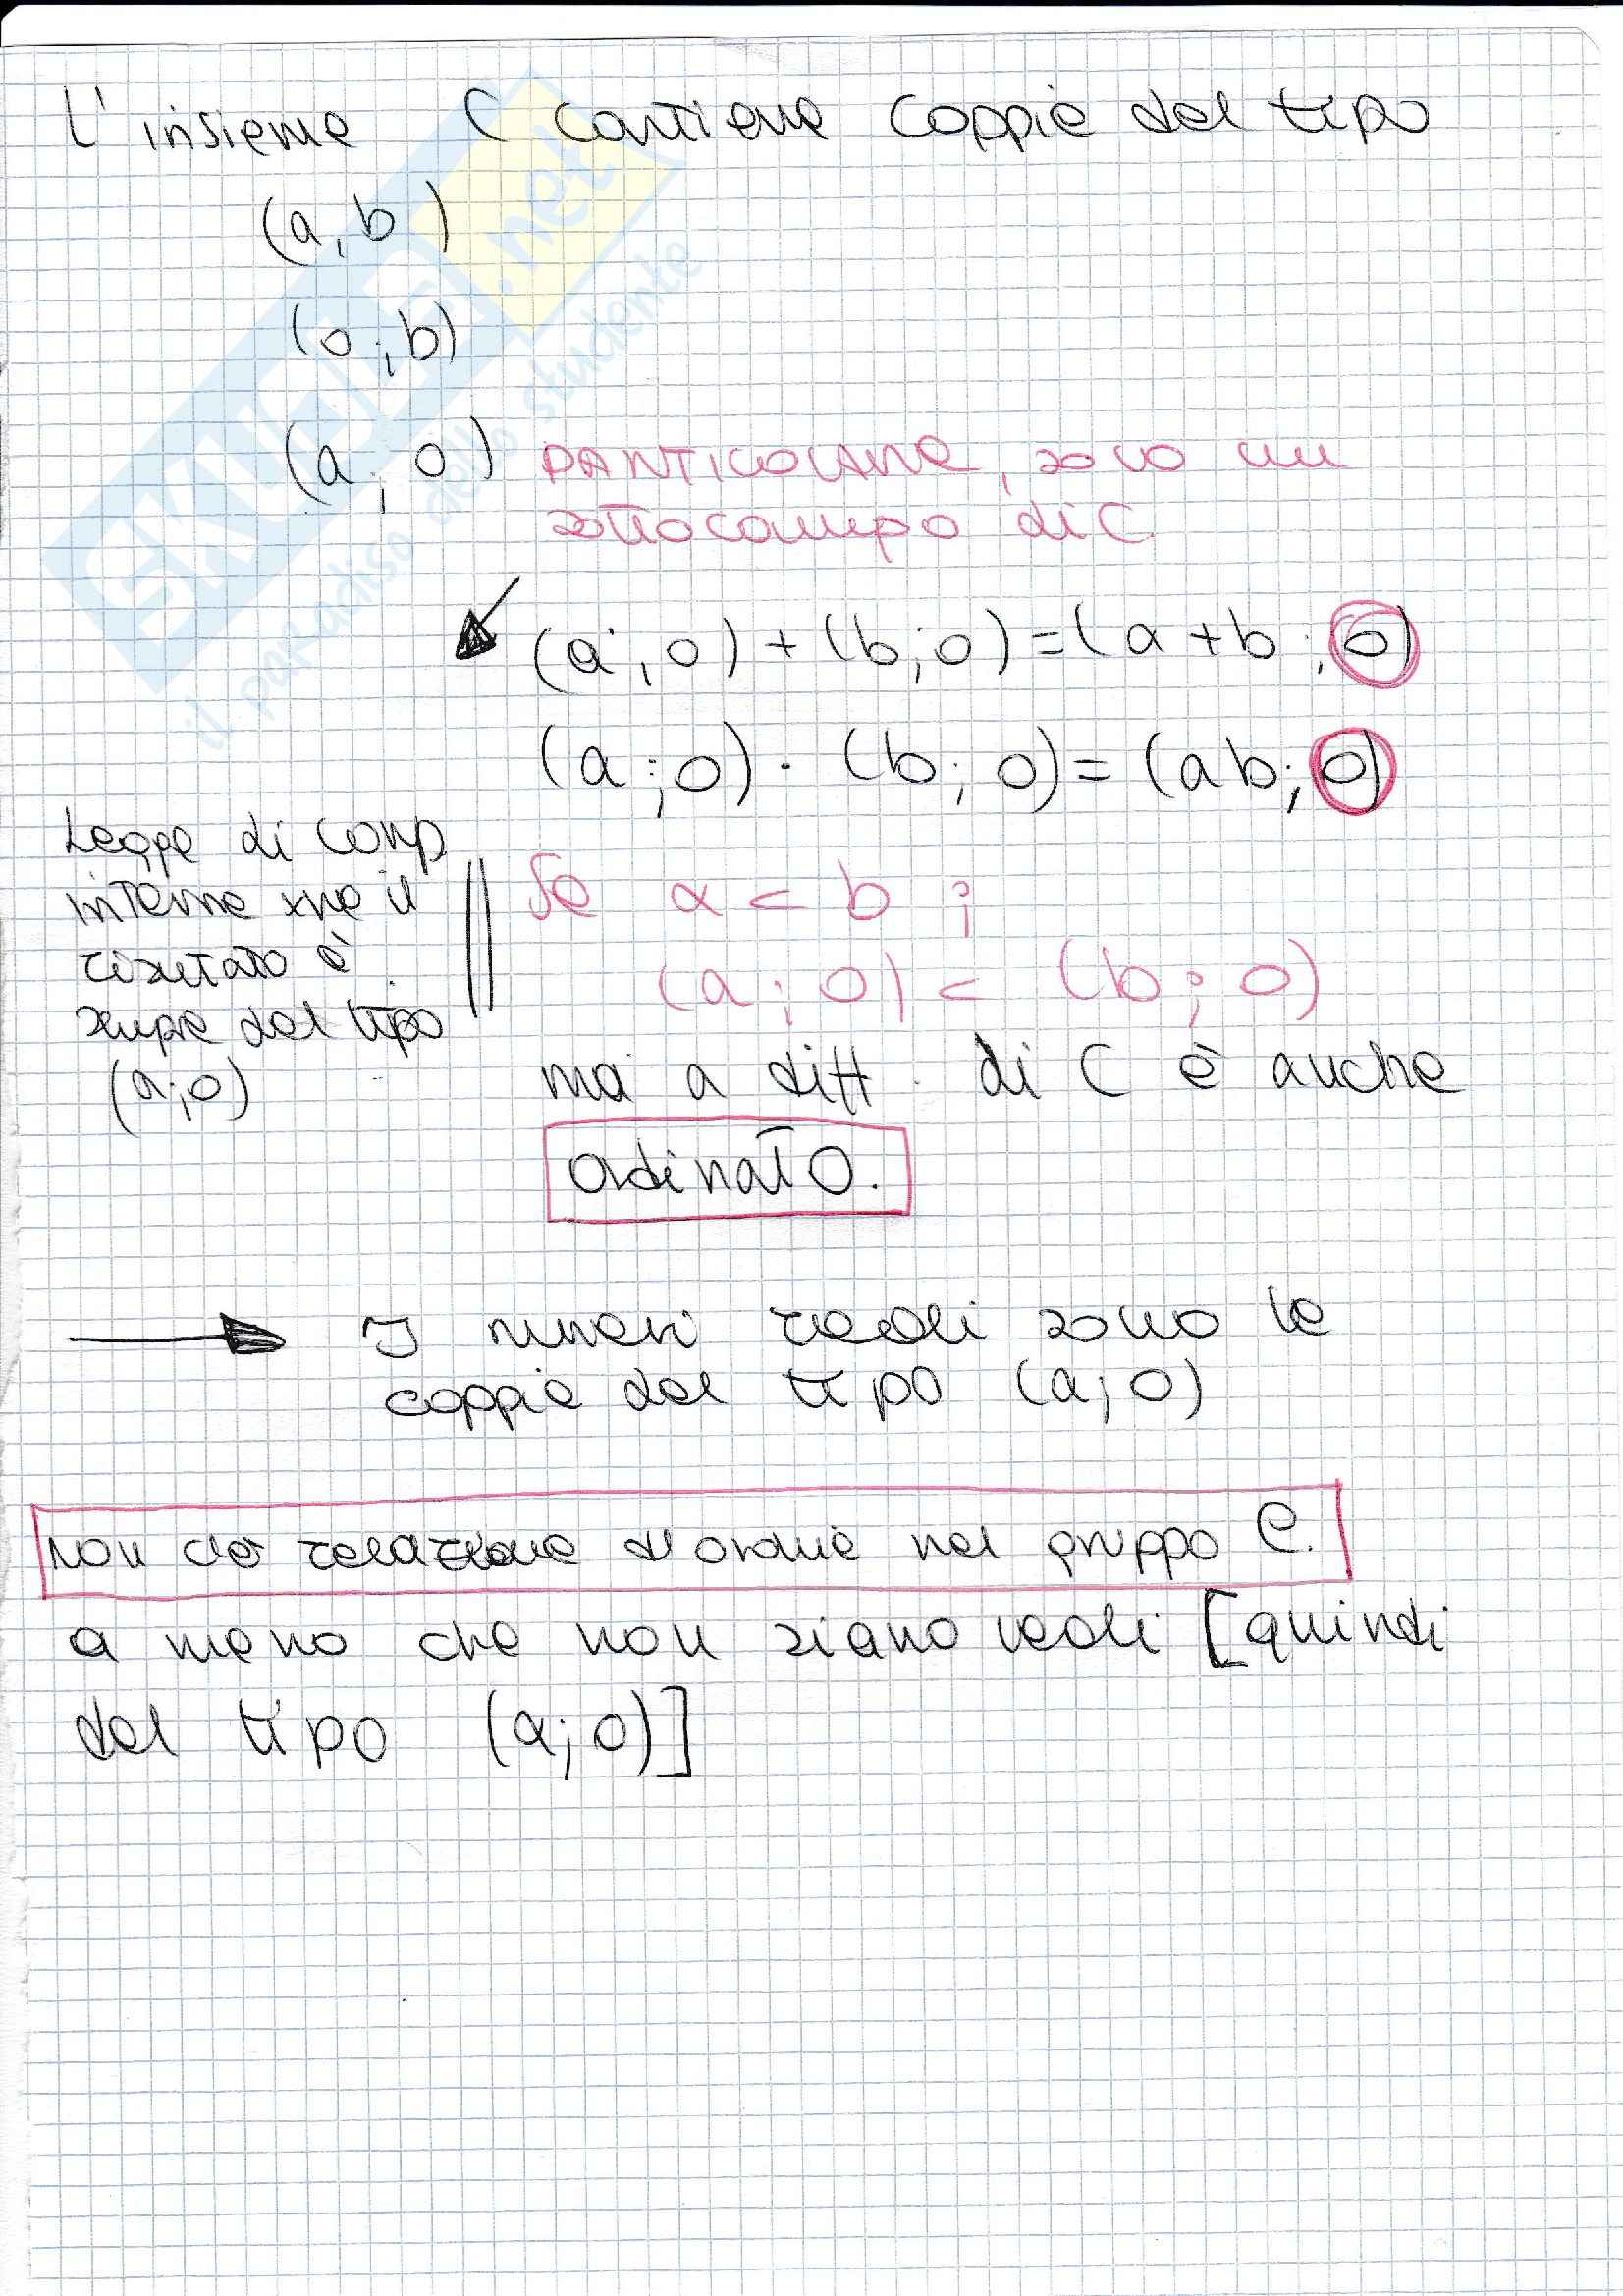 L' insieme C contiene coppie del tipo
(a, b)
(0 ; b)
(a ; 0) PARTICOLARE, sono un
sottocampo di C
(a ; 0) + (b ; 0) = (a + b ; 0)
(a ; 0) · (b ; 0) = (ab ; 0)
Legge di comp
interna xké il
risultato è
sempre del tipo
(a ; 0)
Se a < b ;
(a ; 0) < (b ; 0)
ma a diff. di C è anche
ordinato.
I numeri reali sono le
coppie del tipo (a ; 0)
non c'è relazione d'ordine nel gruppo C.
a meno che non siano reali [quindi
del tipo (a ; 0)]
SKUOLA.net
il paradiso dello studente